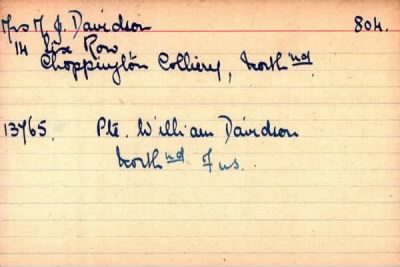 Mrs M. J. Davidson 804.
14 Six Row,
Choppington Colliery, North'nd.
13765. Pte. William Davidson
North'nd Fus.